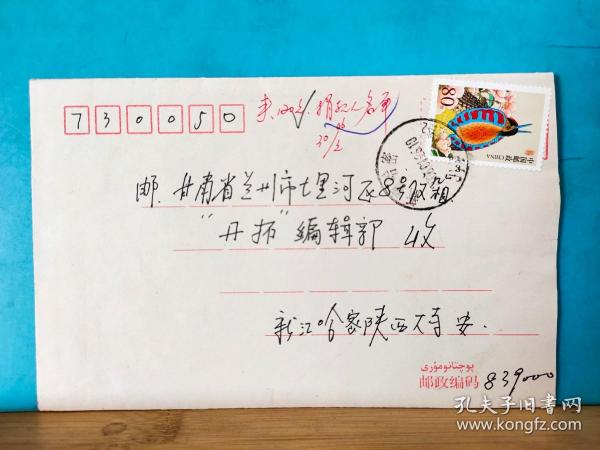 730050
捐款人名单
30/
80
中国邮政 CHINA
邮.甘肃省兰州市七里河区8号信箱
“开拓”编辑部 收
新江哈密陕西大寺 安.
پوچتانومۇرى
邮政编码 839000
孔夫子旧书网
www.kongfz.com